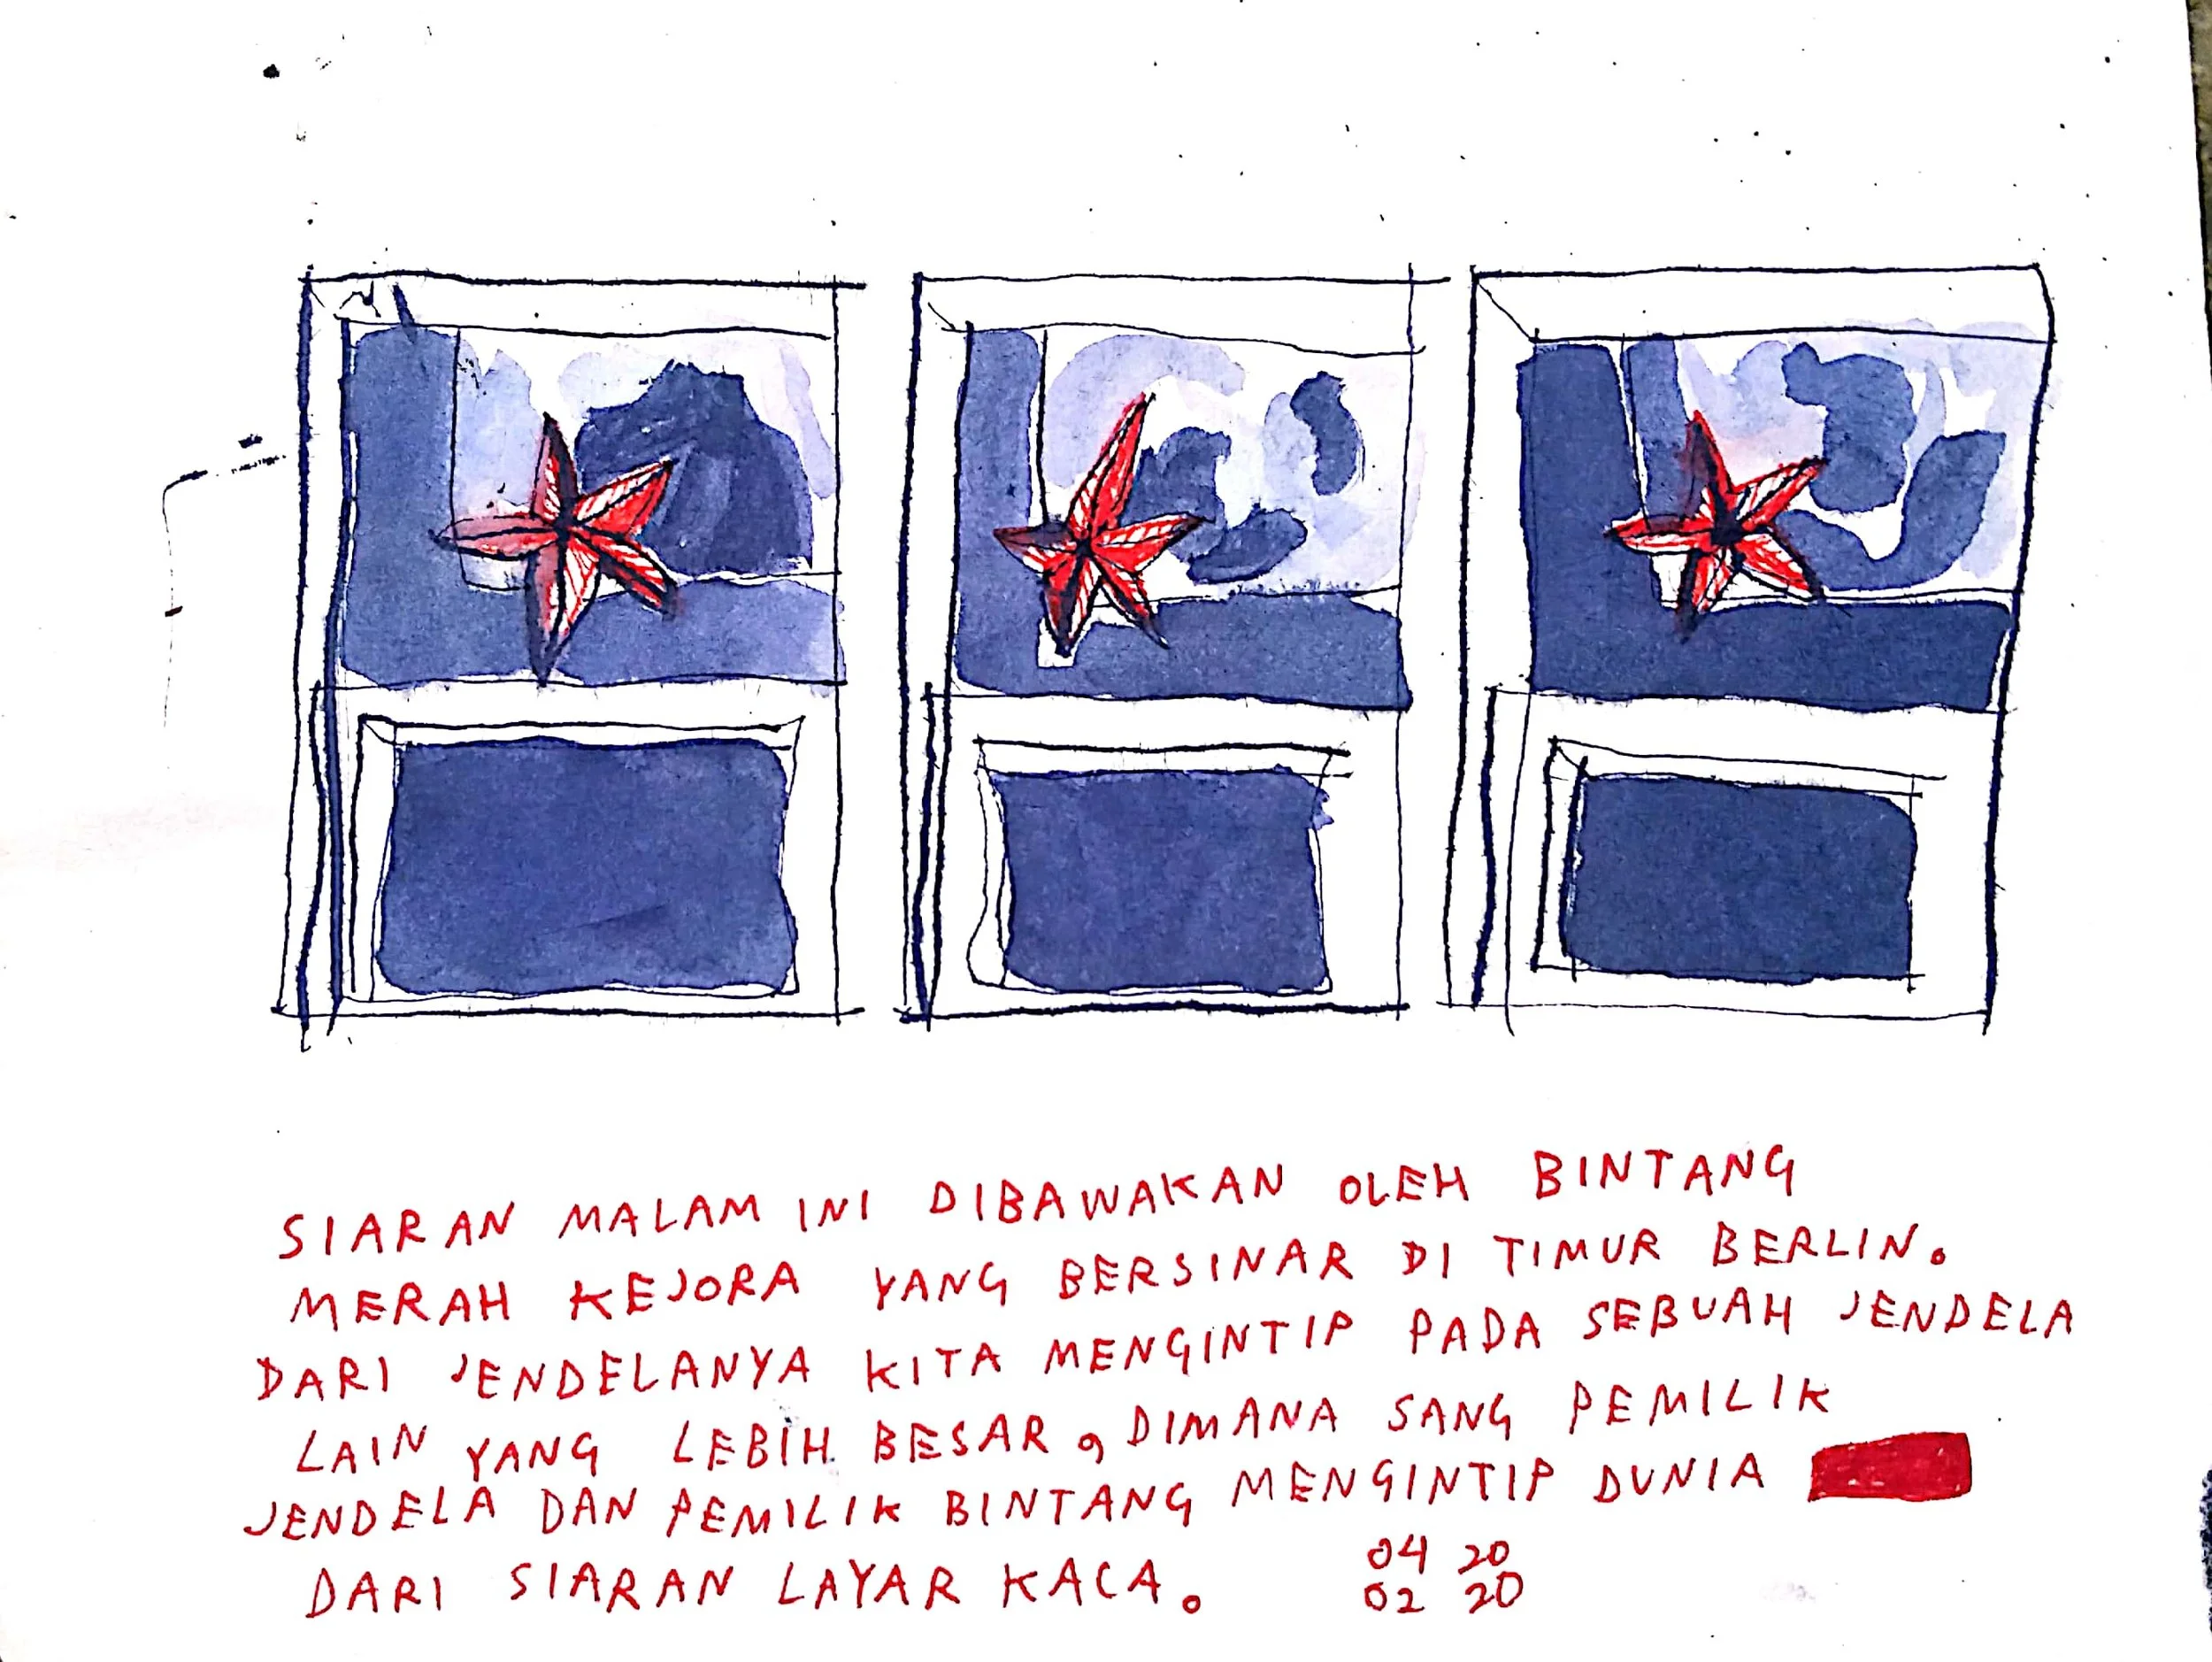 SIARAN MALAM INI DIBAWAKAN OLEH BINTANG
MERAH KEJORA YANG BERSINAR DI TIMUR BERLIN.
DARI JENDELANYA KITA MENGINTIP PADA SEBUAH JENDELA
LAIN YANG LEBIH BESAR, DIMANA SANG PEMILIK
JENDELA DAN PEMILIK BINTANG MENGINTIP DUNIA
DARI SIARAN LAYAR KACA.
04 20
02 20